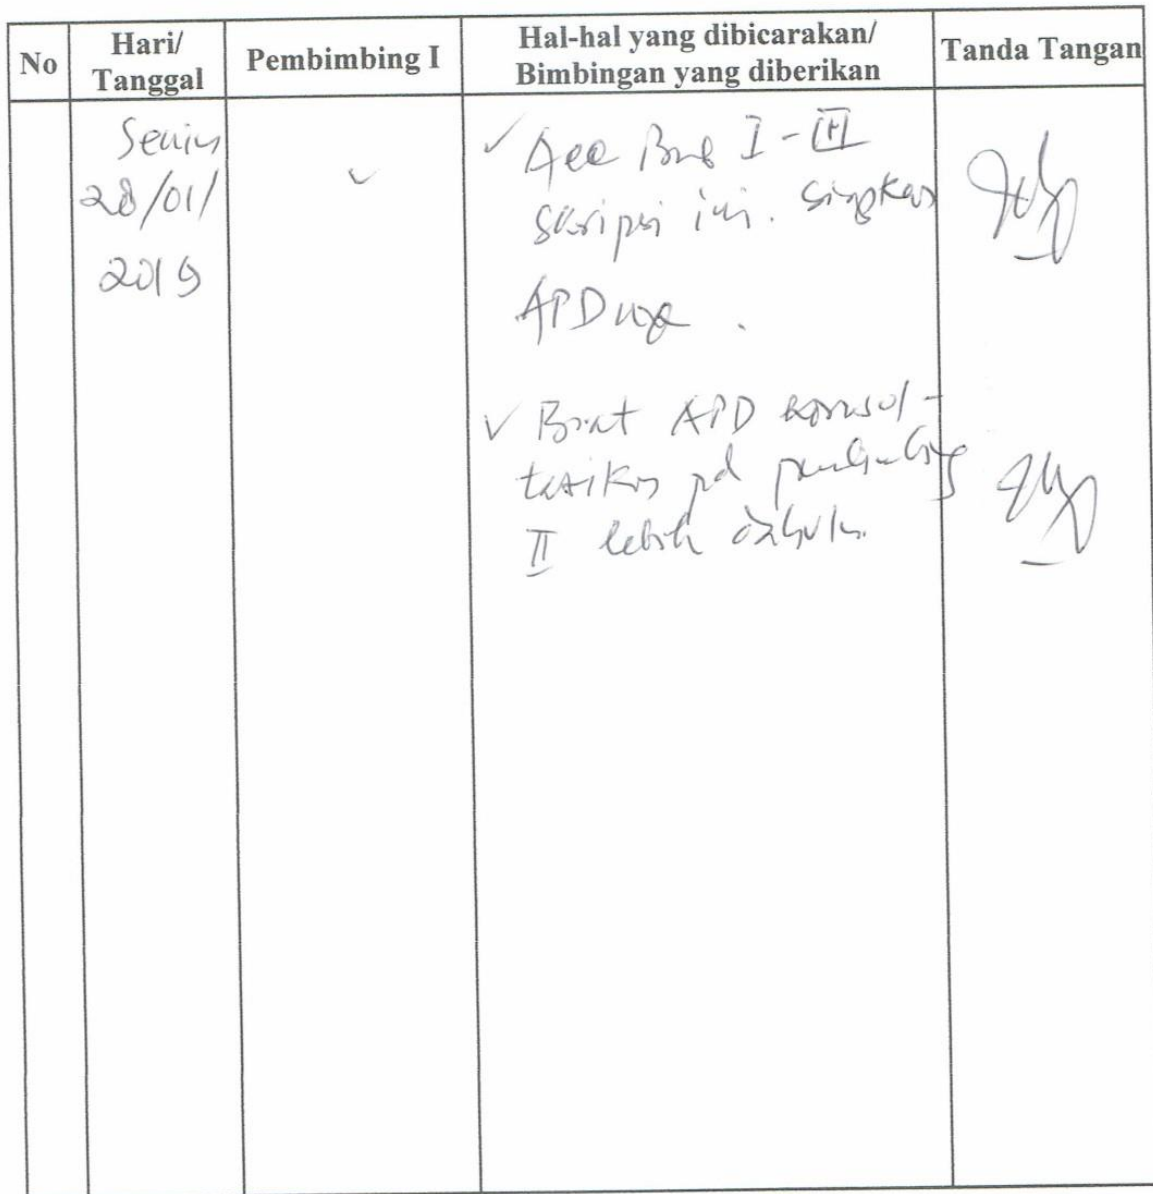 No
Hari/
Tanggal
Pembimbing I
Hal-hal yang dibicarakan/
Bimbingan yang diberikan
Tanda Tangan
Senin
28/01/
2019
Acc Bab I - III
skripsi ini. Siapkan
APDnya.
Buat APD konsul-
tasikan pd pembimbing
II lebih dahulu.